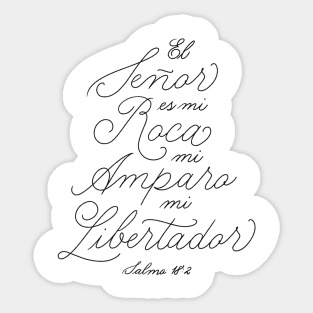 El
Señor
es mi
Roca
mi
Amparo
mi
Libertador
Salmo 18:2